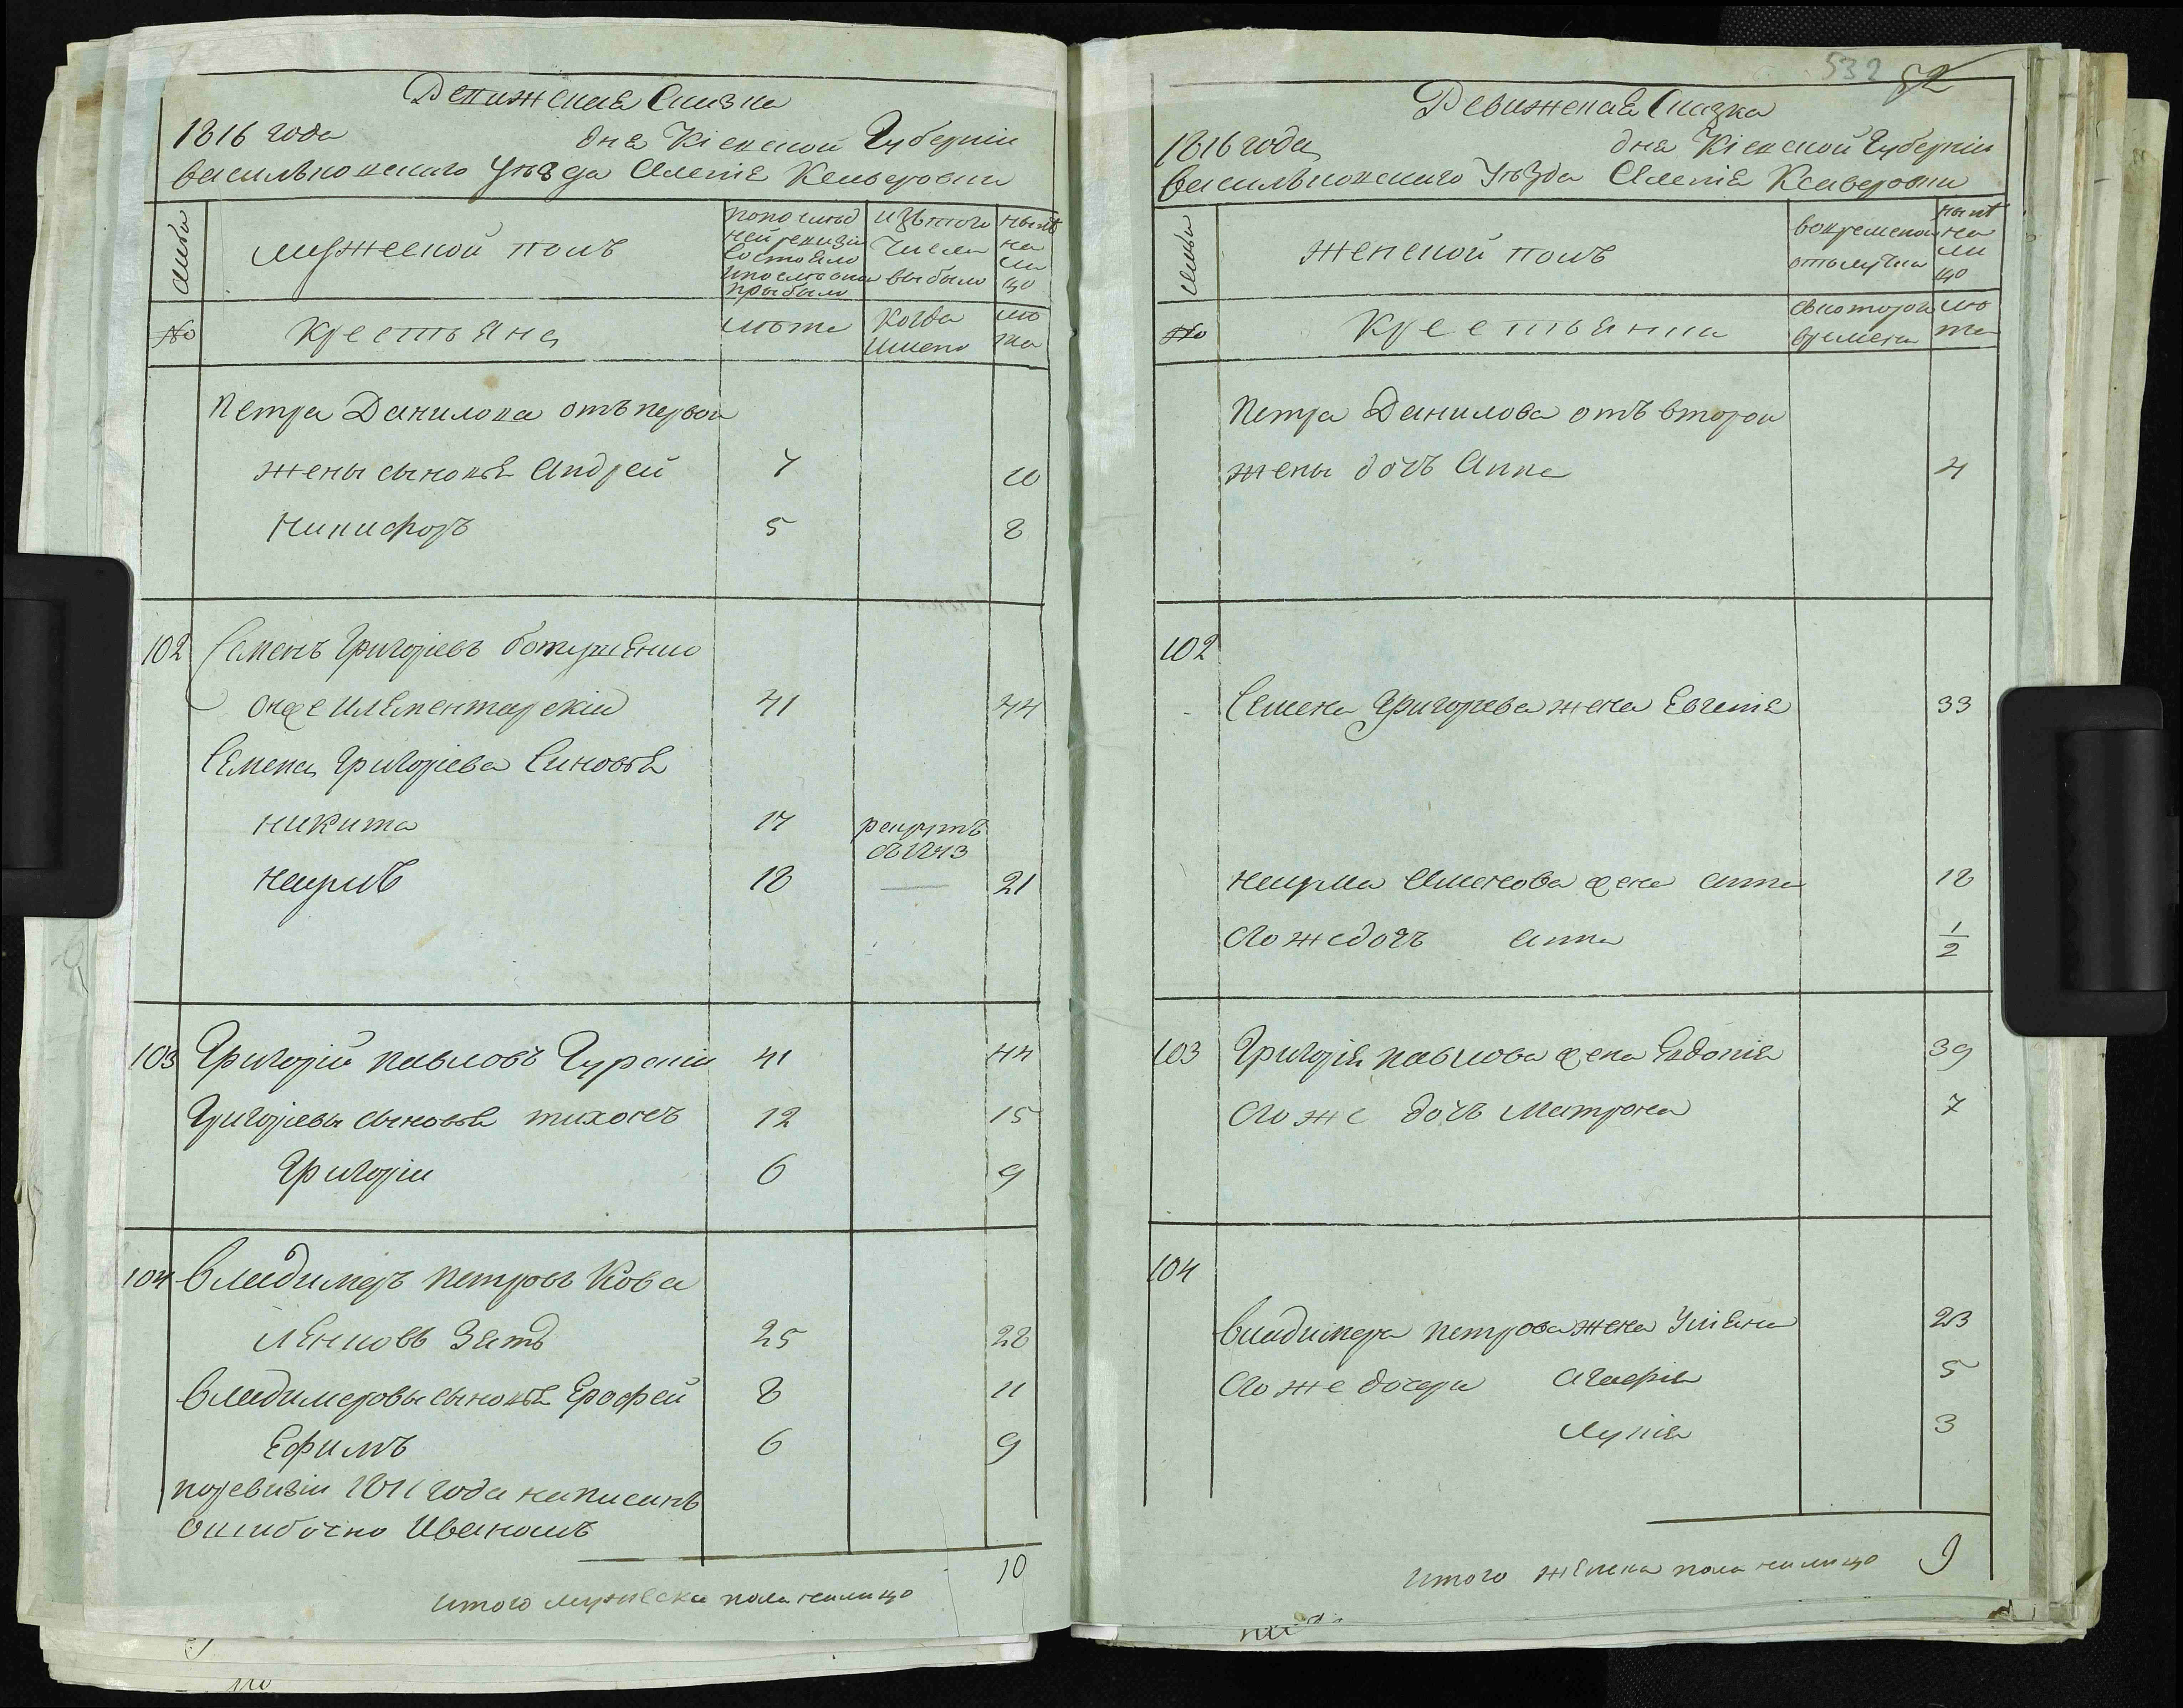 Ревижская Сказка
1816 года дня Кіевской Губерніи
васильковского Уѣзда
семьи
мужеской полъ
попослѣд
ней ревизіи
состояло
ипослѣ оной
прыбыло
изътого
числа
выбыло
нынѣ
на
ли
цо
№
Крестьяне
лѣта
Когда
имено
лѣ
та
Петра Данилова отъ первои
жены сыновья Андрей 7 10
Никифоръ 5 8
102 Семенъ Григоріевъ
41 44
Семена Григоріева Синовья
никита 17 рекрутъ
въ 1813
наумъ 18 — 21
103 Григорій павловъ Гурскій 41 44
Григоріевы сыновья тихонъ 12 15
Григоріи 6 9
104 владимеръ петровъ Кова
ленковъ Зять 25 28
владимеровы сыновья Ерофей 8 11
Ефимъ 6 9
поревизіи 1811 года написанъ
ошибочно Иваномъ
10
итого мужеска пола налицо
532 82
Ревижская Сказка
1816 года дня Кіевской Губерніи
васильковского Уѣзда
семьи
женской полъ
вовременой
отьлучки
нынѣ
на
ли
цо
№
Крестьянки
скоторого
времени
лѣ
та
Петра Данилова отъ второи
жены дочь Анна 4
102
Семена Григорева жена Евгенія 33
наума Семенова жена анна 18
его жедочь анна 1/2
103 Григорія павлова жена Евдокія 39
его же дочь Матрона 7
104
владимера петрова жена Уліяна 23
его же дочери Агафія 5
Лукія 3
итого женска пола налицо 9